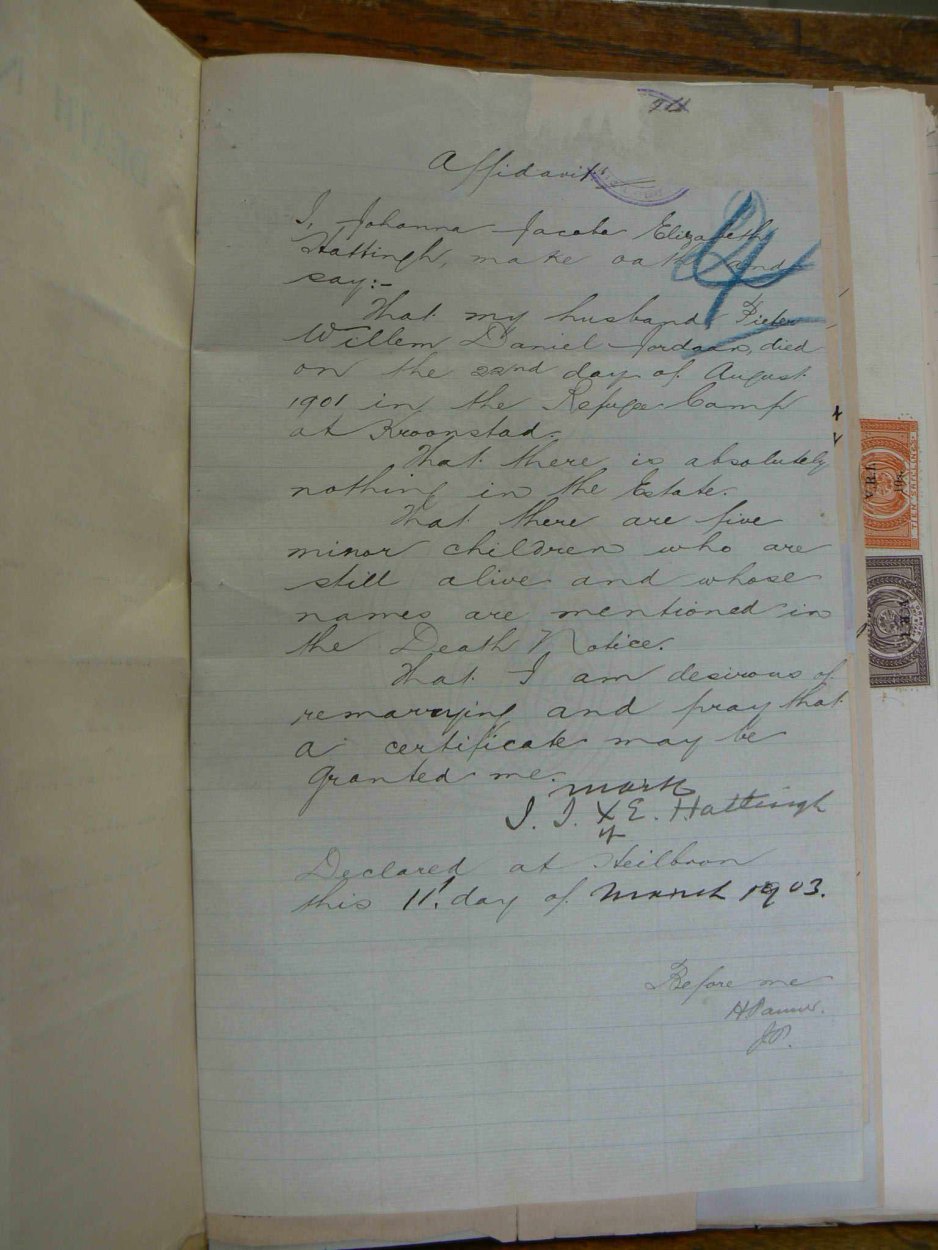 Affidavit
I, Johanna Jacoba Elizabeth
Hattingh, make oath and
say:-
That my husband Pieter
Willem Daniel Jordaan, died
on the 22nd day of August
1901 in the Refugee Camp
at Kroonstad.
That there is absolutely
nothing in the Estate.
That there are five
minor children who are
still alive and whose
names are mentioned in
the Death Notice.
That I am desirous of
remarrying and pray that
a certificate may be
granted me.
mark
J. J. X E. Hattingh
Declared at Heilbron
this 11. day of March 1903.
Before me
J.P.
V.R.I.
TIEN SHILLINGS
V.R.I.
DEATH N